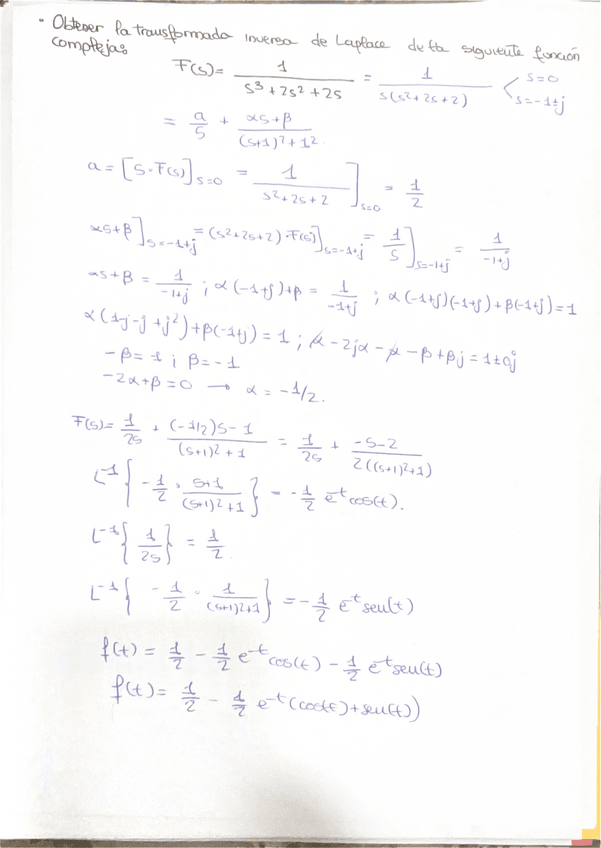 · Obtener la transformada inversa de Laplace de la siguiente función
compleja:
F(s) = 1/(s³ + 2s² + 2s) = 1/(s(s² + 2s + 2)) < s=0 s=-1±j
= a/s + (αs+β)/((s+1)² + 1²)
a = [s·F(s)]s=0 = 1/(s²+2s+2)]s=0 = 1/2
αs+β]s=-1+j = (s²+2s+2)·F(s)]s=-1+j = 1/s]s=-1+j = 1/(-1+j)
αs+β = 1/(-1+j) ; α(-1+j)+β = 1/(-1+j) ; α(-1+j)(-1+j)+β(-1+j)=1
α(1-j-j+j²)+β(-1+j) = 1 ; α - 2jα - α - β + βj = 1±0j
-β = 1 ; β = -1
-2α+β = 0 → α = -1/2.
F(s) = 1/2s + ((-1/2)s-1)/((s+1)²+1) = 1/2s + (-s-2)/(2((s+1)²+1))
L⁻¹{-1/2 · (s+1)/((s+1)²+1)} = -1/2 e⁻ᵗcos(t).
L⁻¹{1/2s} = 1/2
L⁻¹{-1/2 · 1/((s+1)²+1)} = -1/2 e⁻ᵗsen(t)
f(t) = 1/2 - 1/2 e⁻ᵗcos(t) - 1/2 e⁻ᵗsen(t)
f(t) = 1/2 - 1/2 e⁻ᵗ(cos(t)+sen(t))